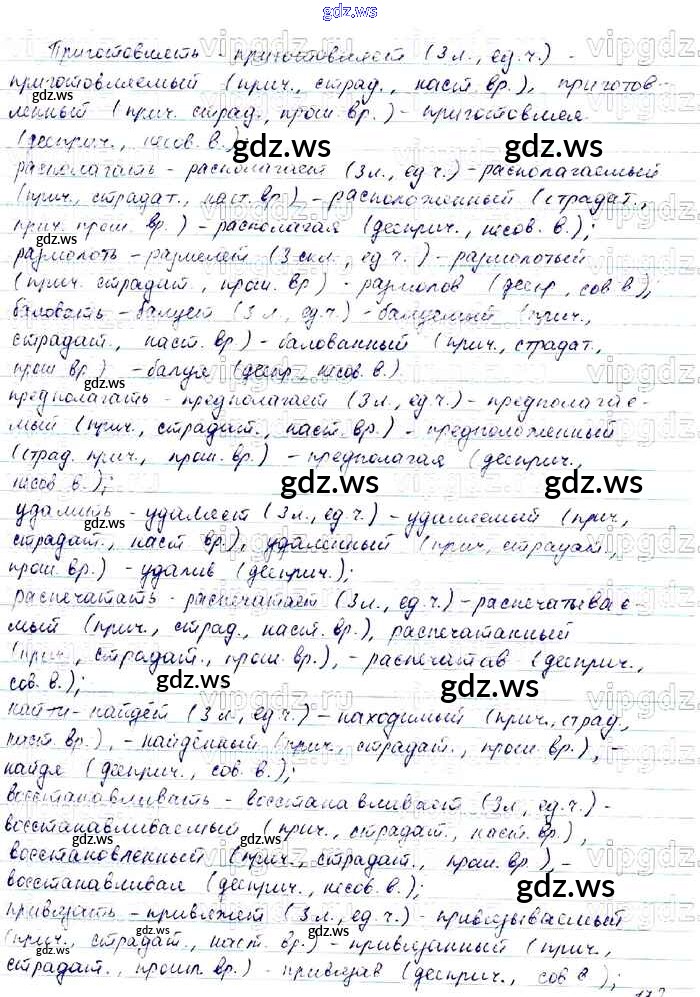 gdz.ws
Приготовлять - приготовляет (3 л., ед.ч.) -
приготовляемый (прич., страд., наст. вр.), приготов-
ленный (прич. страд., прош. вр.) - приготовляя
(дееприч., несов. в.);
располагать - располагает (3 л., ед.ч.) - располагаемый
(прич., страдат., наст. вр.) - расположенный (страдат.,
прич. прош. вр.) - располагая (дееприч., несов. в.);
размолоть - размелет (3 скл., ед.ч.) - размолотый
(прич. страдат., прош. вр) - размолов (дееpr., сов в);
баловать - балует (3 л., ед.ч.) - балуемый (прич.,
страдат., наст. вр) - балованный (прич., страдат.,
прош вр) - балуя (деепр., несов. в.)
предполагать - предполагает (3 л., ед.ч.) - предполагае-
мый (прич., страдат., наст. вр.) - предположенный
(страд. прич., прош. вр.) - предполагая (дееприч.,
несов. в.);
удалить - удаляет (3 л., ед.ч.) - удаляемый (прич,
страдат., наст вр.), удалённый (прич, страдат.,
прош. вр.) - удалив (дееприч.);
распечатать - распечатает (3 л., ед.ч.) - распечатывае-
мый (прич., страд., наст. вр.), распечатанный
(прич., страдат., прош. вр.), - распечатав (дееприч.,
сов. в.);
найти - найдёт (3 л., ед.ч.) - находимый (прич., страд,
наст. вр.), - найденный (прич., страдат., прош. вр.), -
найдя (дееприч., сов. в.);
восстанавливать - восстанавливает (3 л, ед.ч.) -
восстанавливаемый (прич., страдат., наст. вр.),
восстановленный (прич., страдат., прош. вр.) -
восстанавливая (дееприч., несов. в.);
привязать - привяжет (3 л., ед.ч.) - привязываемый
(прич., страдат., наст. вр.) - привязанный (прич.,
страдат., прошл. вр.) - привязав (дееприч., сов в);